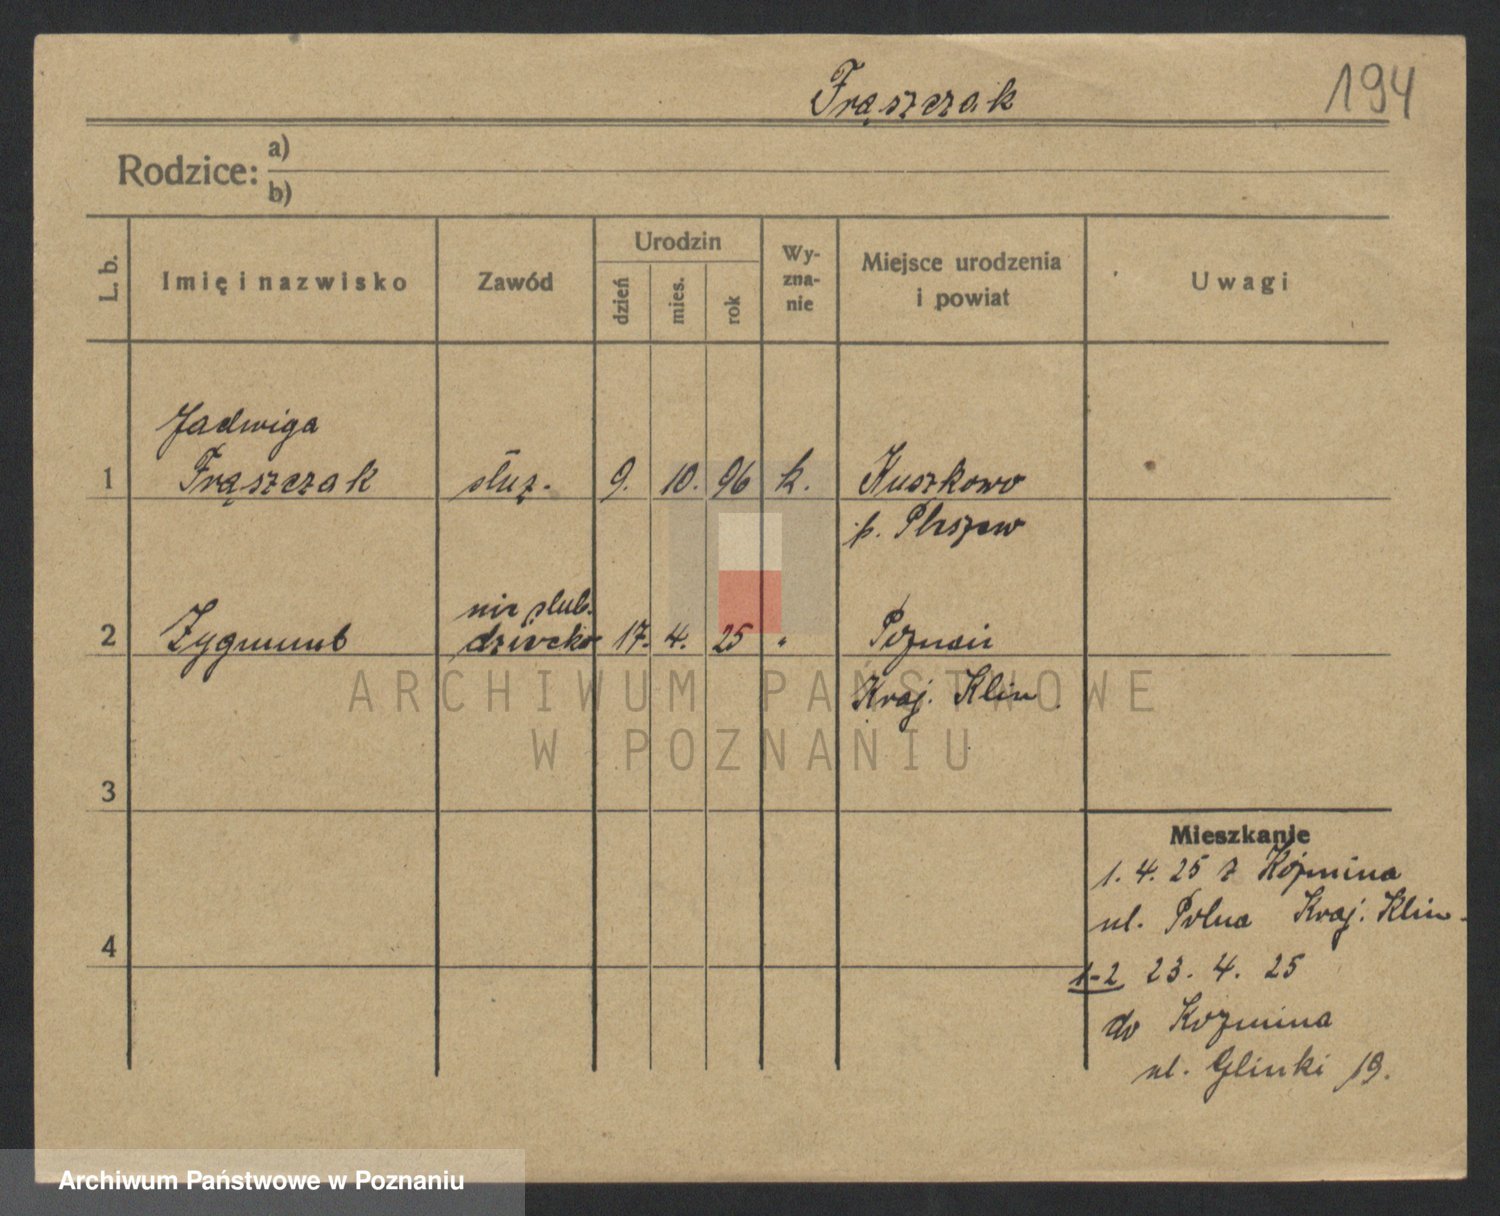 Frąszczak 194
Rodzice: a)
b)
L. b. Imię i nazwisko Zawód Urodzin dzień mies. rok Wy-zna-nie Miejsce urodzenia i powiat Uwagi
Jadwiga
1 Frąszczak służ. 9. 10. 96 k. Kuszkowo
p. Pleszew
nie ślub.
2 Zygmunt dziecko 17. 4. 25 " Poznań
Kraj. Klin.
3
4
Mieszkanie
1. 4. 25 z Koźmina
ul. Polna Kraj. Klin.
1-2 23. 4. 25
do Kozmina
ul. Glinki 19.
ARCHIWUM PAŃSTWOWE
W POZNANIU
Archiwum Państwowe w Poznaniu